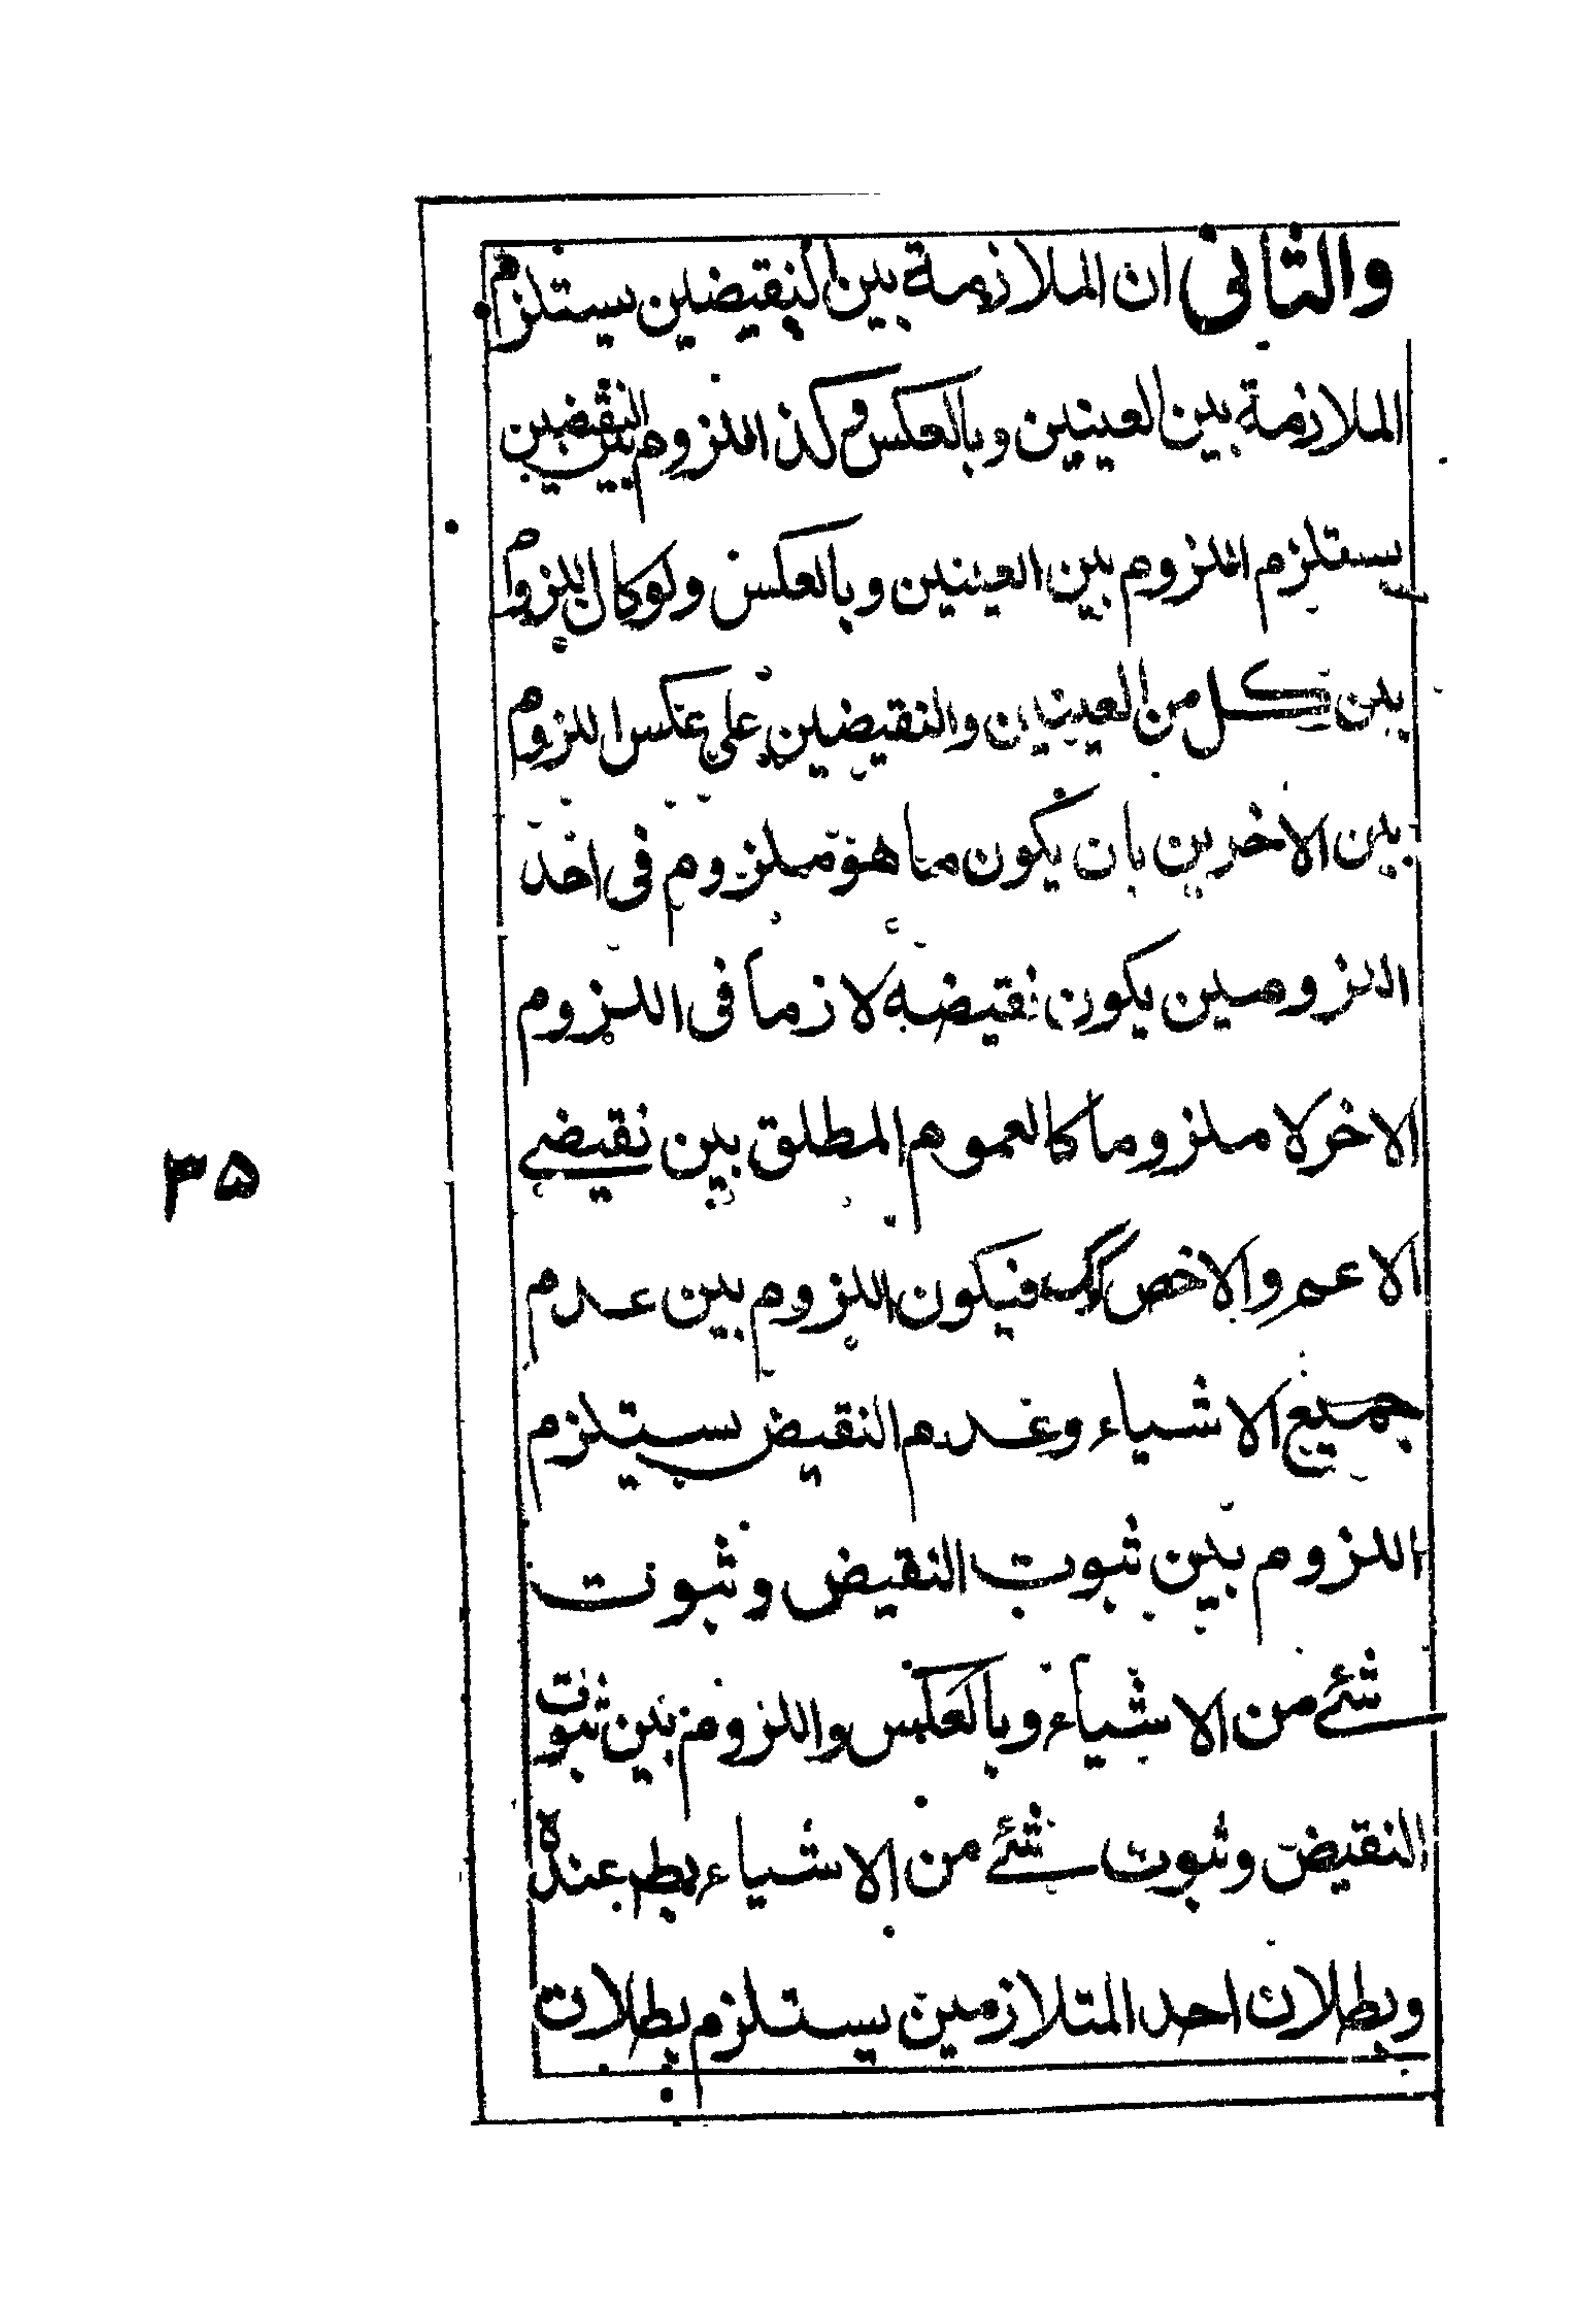 والثانی ان الملازمة بین النقیضین یستلزم
الملازمة بین العینین وبالعکس وکذا اللزوم بین النقیضین
یستلزم اللزوم بین العینین وبالعکس ولو کان اللزوم
بین کل من العینین والنقیضین علی عکس اللزوم
بین الاخرین بان یکون ما هو ملزوم فی احد
اللزومین یکون نقیضه لازما فی اللزوم
الاخر لا ملزوما کالعموم المطلق بین نقیضی
الاعم والاخص فیکون اللزوم بین عدم
جمیع الاشیاء وعدم النقیض یستلزم
اللزوم بین ثبوت النقیض وثبوت
شئ من الاشیاء وبالعکس واللزوم بین ثبوت
النقیض وثبوت شئ من الاشیاء بط عنده
وبطلان احد المتلازمین یستلزم بطلان
۳۵